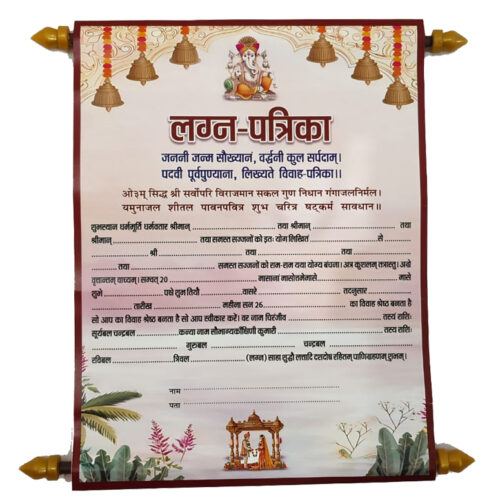 लग्न-पत्रिका
जननी जन्म सौख्यान, वर्द्धनी कुल सर्पदाम्।
पदवी पूर्वपुण्याना, लिख्यते विवाह-पत्रिका।।
ओ३म् सिद्ध श्री सर्वोपरि विराजमान सकल गुण निधान गंगाजलनिर्मल।
यमुनाजल शीतल पावनपवित्र शुभ चरित्र षट्कर्म सावधान॥
शुभस्थान धर्ममूर्ति धर्मवतार श्रीमान् ........ तथा श्रीमान् ........ तथा
श्रीमान् ........ तथा समस्त सज्जनों को इतः योग लिखित ........ से
........ श्री ........ तथा ........ तथा
........ तथा ........ समस्त सज्जनों को राम-राम यथा योग्य बंचना। अत्र कुशलम् तत्रास्तु। अग्रे
वृत्तान्तम् वाच्यम्। सम्वत् 20 ........ मासाना मासोत्तमेमासे ........ मासे
शुभे ........ पक्षे शुभ तिथौ ........ वासरे ........ तदनुसार ........
........ तारीख ........ महीना सन 26 ........ का विवाह श्रेष्ठ बनता है
सो आप का विवाह श्रेष्ठ बनता है सो आप स्वीकार करें। वर नाम चिरंजीव ........ तस्य राशिः
सूर्यबल चन्द्रबल ........ कन्या नाम सौभाग्यकांक्षिणी कुमारी ........ तस्य राशिः
........ गुरुबल ........ चन्द्रबल ........
रविबल ........ त्रिवल ........ (लग्न) साहा शुद्धौ लत्तादि दशदोष रहितम् पाणिग्रहणम् शुभम्।
नाम ........
पता ........